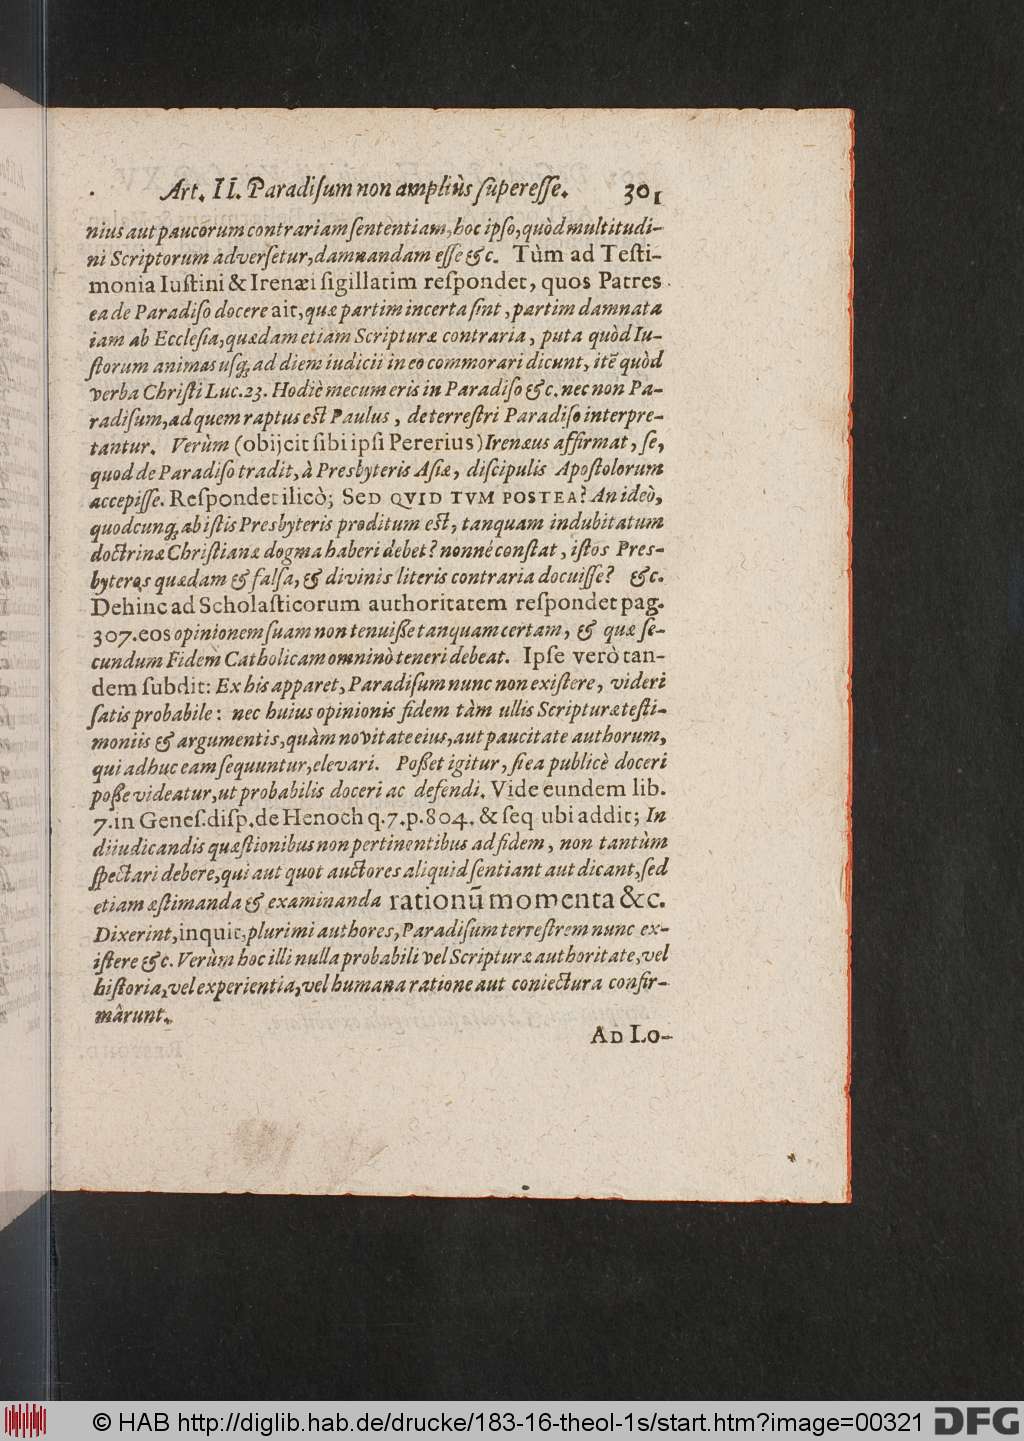 Art. II. Paradiſum non ampliùs ſupereſſe. 301
nius aut paucorum contrariam ſententiam, hoc ipſo, quòd multitudi-
ni Scriptorum adverſetur, damnandam eſſe &c. Tùm ad Teſti-
monia Iuſtini & Irenæi ſigillatim reſpondet, quos Patres
ea de Paradiſo docere ait, quæ partim incerta ſint, partim damnata
iam ab Eccleſia, quædam etiam Scripturæ contraria, puta quòd Iu-
ſtorum animas uſq; ad diem iudicii in eo commorari dicunt, itē quòd
verba Chriſti Luc. 23. Hodiè mecum eris in Paradiſo &c. nec non Pa-
radiſum, ad quem raptus eſt Paulus, de terreſtri Paradiſo interpre-
tantur. Verùm (obijcit ſibi ipſi Pererius) Irenæus affirmat, ſe,
quod de Paradiſo tradit, à Presbyteris Aſiæ, diſcipulis Apoſtolorum
accepiſſe. Reſpondet ilicò; SED QVID TVM POSTEA? An ideò,
quodcunq; ab iſtis Presbyteris proditum eſt, tanquam indubitatum
doctrinæ Chriſtianæ dogma haberi debet? nonnè conſtat, iſtos Pres-
byteros quædam & falſa, & divinis literis contraria docuiſſe? &c.
Dehinc ad Scholaſticorum authoritatem reſpondet pag.
307. eos opinionem ſuam non tenuiſſe tanquam certam, & quæ ſe-
cundum Fidem Catholicam omninò teneri debeat. Ipſe verò tan-
dem ſubdit: Ex his apparet, Paradiſum nunc non exiſtere, videri
ſatis probabile: nec huius opinionis fidem tàm ullis Scripturæ teſti-
moniis & argumentis, quàm novitate eius, aut paucitate authorum,
qui adhuc eam ſequuntur, elevari. Poſſet igitur, ſi ea publicè doceri
poſſe videatur, ut probabilis doceri ac defendi. Vide eundem lib.
7. in Geneſ. diſp. de Henoch q. 7. p. 804. & ſeq ubi addit; In
diiudicandis quæſtionibus non pertinentibus ad fidem, non tantùm
ſpectari debere, qui aut quot auctores aliquid ſentiant aut dicant, ſed
etiam æſtimanda & examinanda rationū momenta &c.
Dixerint, inquit, plurimi authores, Paradiſum terreſtrem nunc ex-
iſtere &c. Verùm hoc illi nulla probabili vel Scripturæ authoritate, vel
hiſtoria, vel experientia, vel humana ratione aut coniectura confir-
mârunt.
AD LO-
© HAB http://diglib.hab.de/drucke/183-16-theol-1s/start.htm?image=00321 DFG